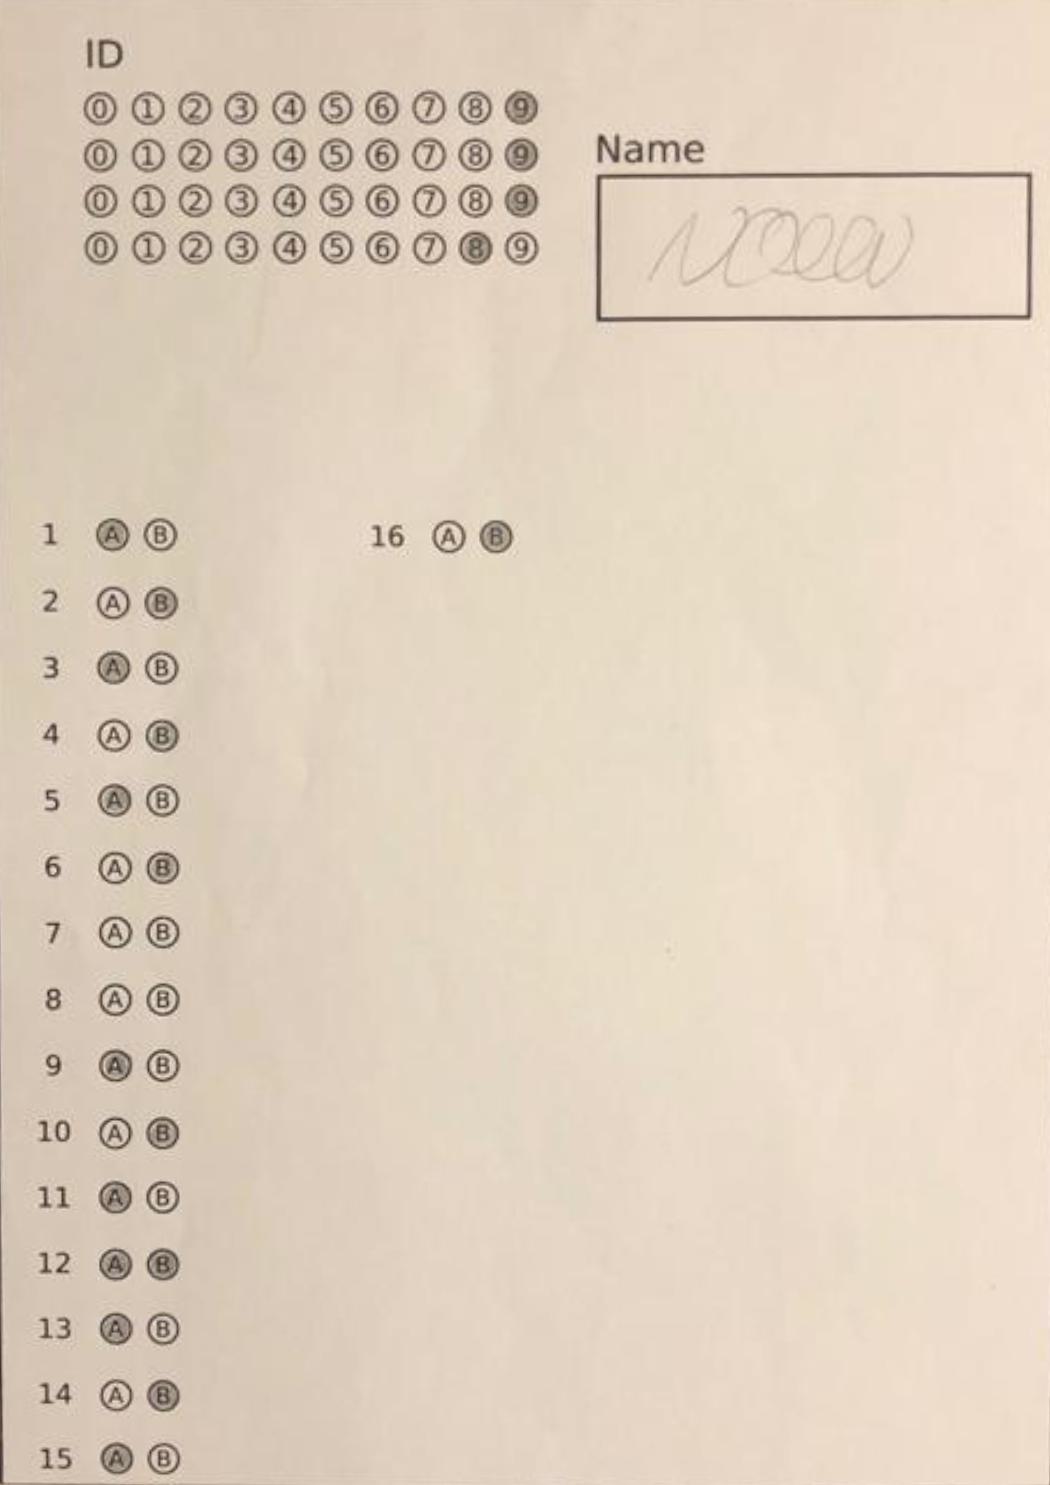 ID
0 1 2 3 4 5 6 7 8 9
0 1 2 3 4 5 6 7 8 9
0 1 2 3 4 5 6 7 8 9
0 1 2 3 4 5 6 7 8 9
Name
1 A B
2 A B
3 A B
4 A B
5 A B
6 A B
7 A B
8 A B
9 A B
10 A B
11 A B
12 A B
13 A B
14 A B
15 A B
16 A B